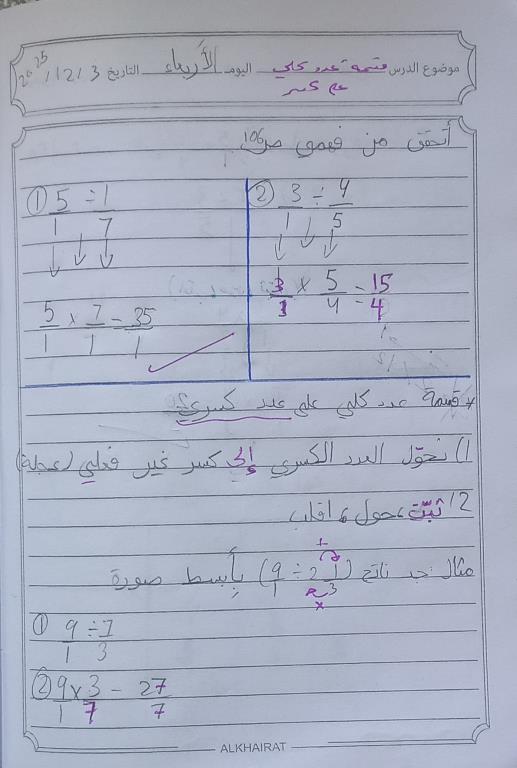 موضوع الدرس قسمة عدد كلي اليوم الأربعاء التاريخ 3/12/2025
على كسر
أتحقق من فهمي ص106
① 5/1 ÷ 1/7
② 3/1 ÷ 4/5
5/1 × 7/1 = 35/1
3/1 × 5/4 = 15/4
* قسمة عدد كلي على عدد كسري:
1) نحوّل العدد الكسري إلى كسر غير فعلي (عجلة)
2) ثبّت، حول، اقلب
مثال: جد ناتج (9/1 ÷ 2 1/3) بأبسط صورة
+
×
① 9/1 ÷ 7/3
② 9/1 × 3/7 = 27/7
ALKHAIRAT